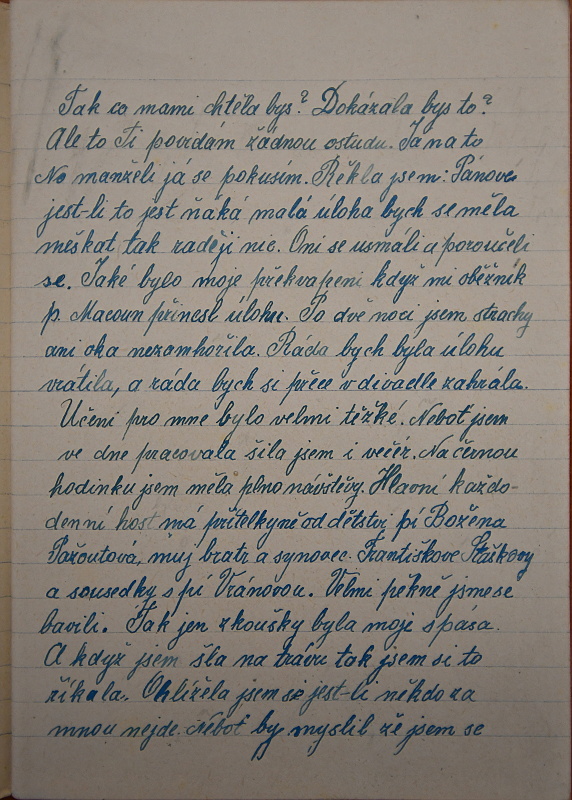 Tak co mami chtěla bys? Dokázala bys to?
Ale to Ti povzdám žádnou ostudu. Já na to
No manželi já se pokusím. Řěkla jsem: Pánové
jest-li to jest ňáká malá úloha bych se měla
meškat tak raději nic. Oni se usmáli a poroučeli
se. Jaké bylo moje překvapeni když mi oběžník
p. Macoun přinesl úlohu. Po dvě noci jsem strachy
ani oka nezamhořila. Ráda bych byla úlohu
vrátila, a ráda bych si přece v divadle zahrála.
Učeni pro mne bylo velmi těžké. Neboť jsem
ve dne pracovala šila jsem i večér. Na černou
hodinku jsem měla plno návštěvy. Hlavní každo-
denní host má přítelkyně od dětství pí Božena
Pažoutová, můj bratr a synovec Františkove Staškovy
a sousedky s pí Vránovou. Velmi pěkně jsme se
bavili. Tak jen zkoušky byla moje spása.
A když jsem šla na trávu tak jsem si to
říkala. Ohlížela jsem se jest-li někdo za
mnou nejde. Neboť by myslil že jsem se